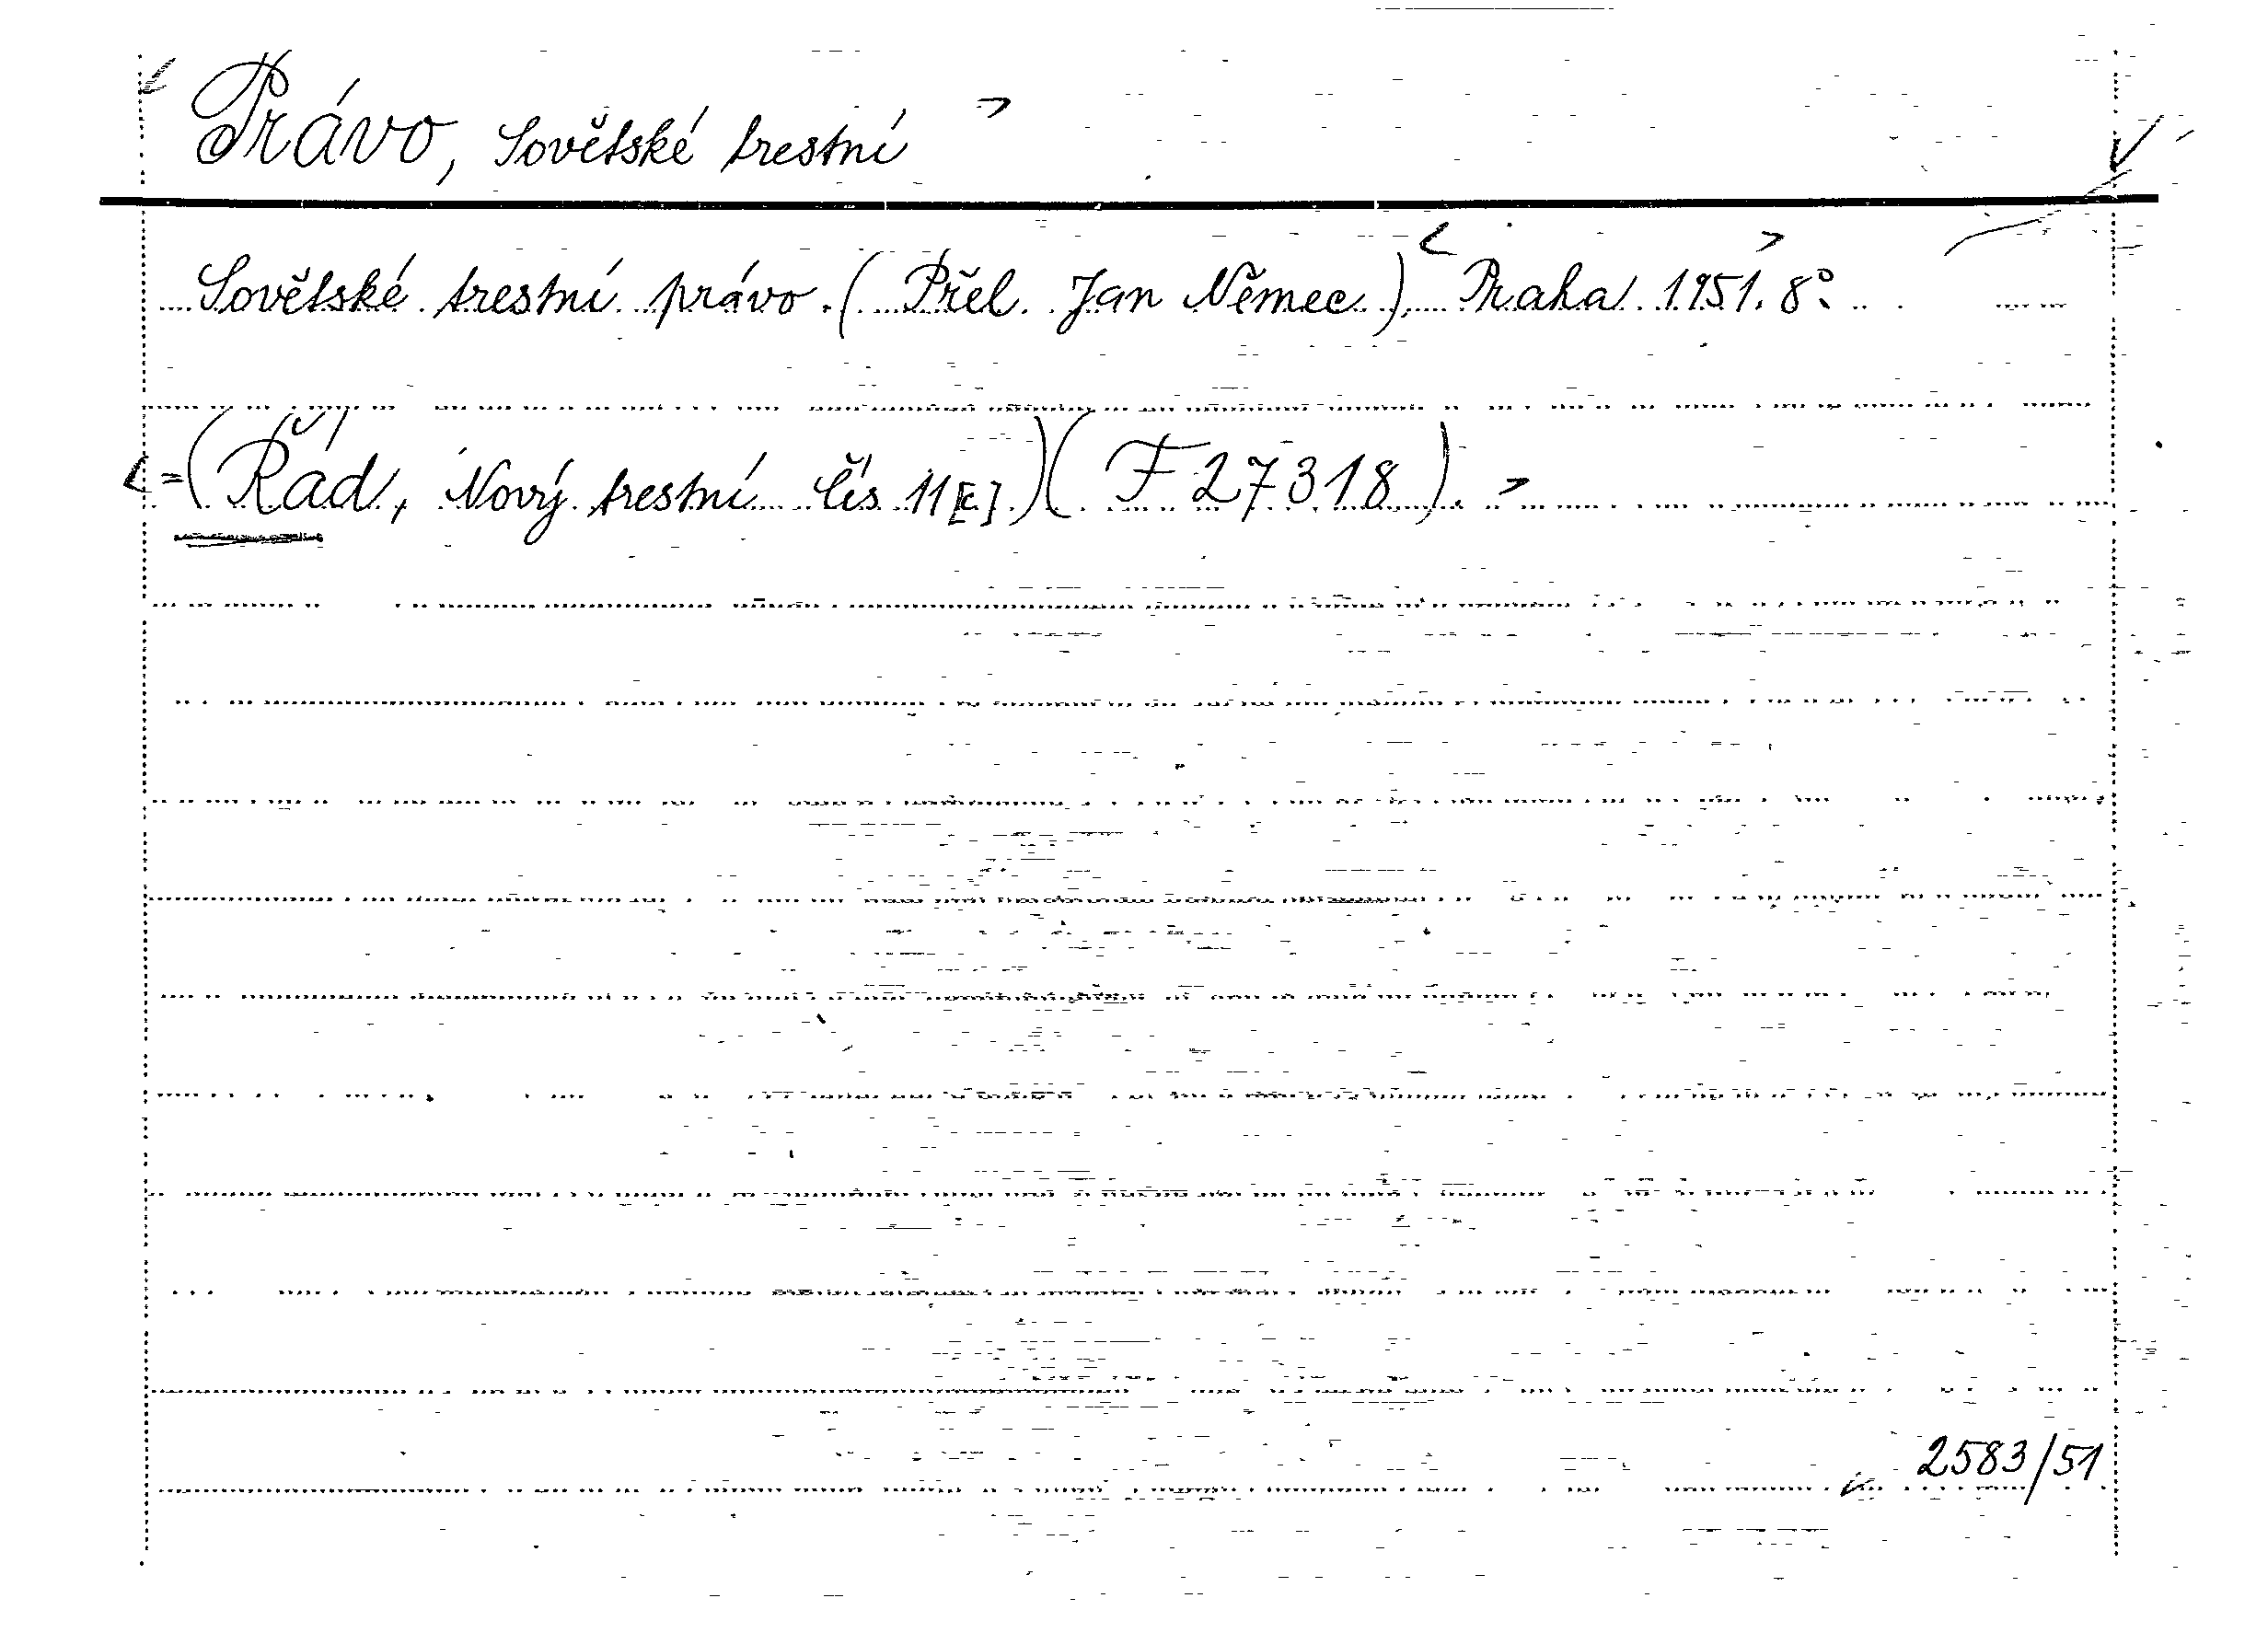 Právo, Sovětské trestní
Sovětské trestní právo. (Přel. Jan Němec). Praha 1951. 8°.
= (Řád, Nový trestní čís 11 [c].) (F 27318).
2583/51